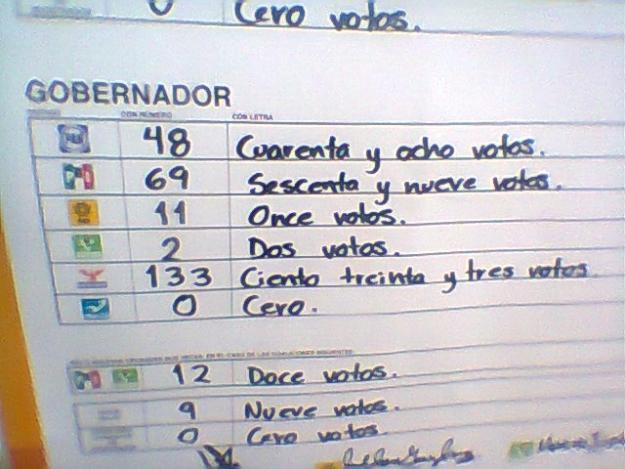 0 Cero votos.
GOBERNADOR
CON NÚMERO CON LETRA
PAN 48 Cuarenta y ocho votos.
PRI 69 Sescenta y nueve votos.
11 Once votos.
2 Dos votos.
133 Ciento treinta y tres votos
0 Cero.
PRI 12 Doce votos.
9 Nueve votos.
0 Cero votos.